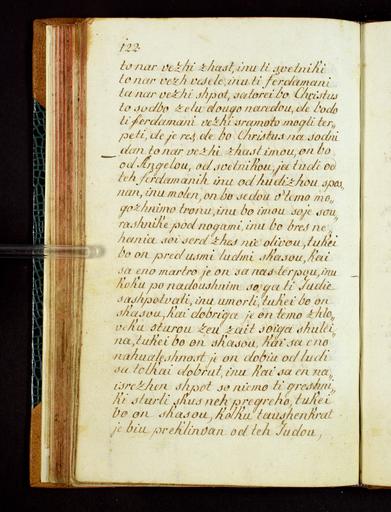 122
to nar vezhi zhast, inu ti svetniki
to nar vezh vesele, inu ti ferdamani
ta nar vezhi shpot, satorei bo Christus
to sodbo zelu dougo naredou, de bodo
ti ferdamani vezhi sramoto mogli ter„
peti, de je res, de bo Christus na sodni
dan to nar vezhi zhast imou, on bo
od Angelou, od svetnikou, ja tudi od
teh ferdamanih inu od hudizhou spos„
nan, inu molen, on bo sedou o'temo mo„
gozhnimo tronu, inu bo imou soje sou„
rashnike pod nogami, inu bo bres ne„
hania soi serd zhes nie olivou, tukei
bo on pred usmi ludmi skasou, kai
sa eno martro je on sa nas terpou, inu
koku po nadoushnim so ga ti Judie
sashpotvali, inu umorli, tukei bo on
skasou, kai dobriga je on temo zhlo„
veku sturou zeu zait soiga shulei„
na, tukei bo on skasou, kai sa eno
nahualeshnost je on dobiu od ludi
sa tolkai dobrut, inu kai sa en na„
isrezhen shpot so niemo ti greshni„
ki sturli skus neh pregreho, tukei
bo on skasou, kolku taushenkrat
je biu preklinvan od teh Judou,